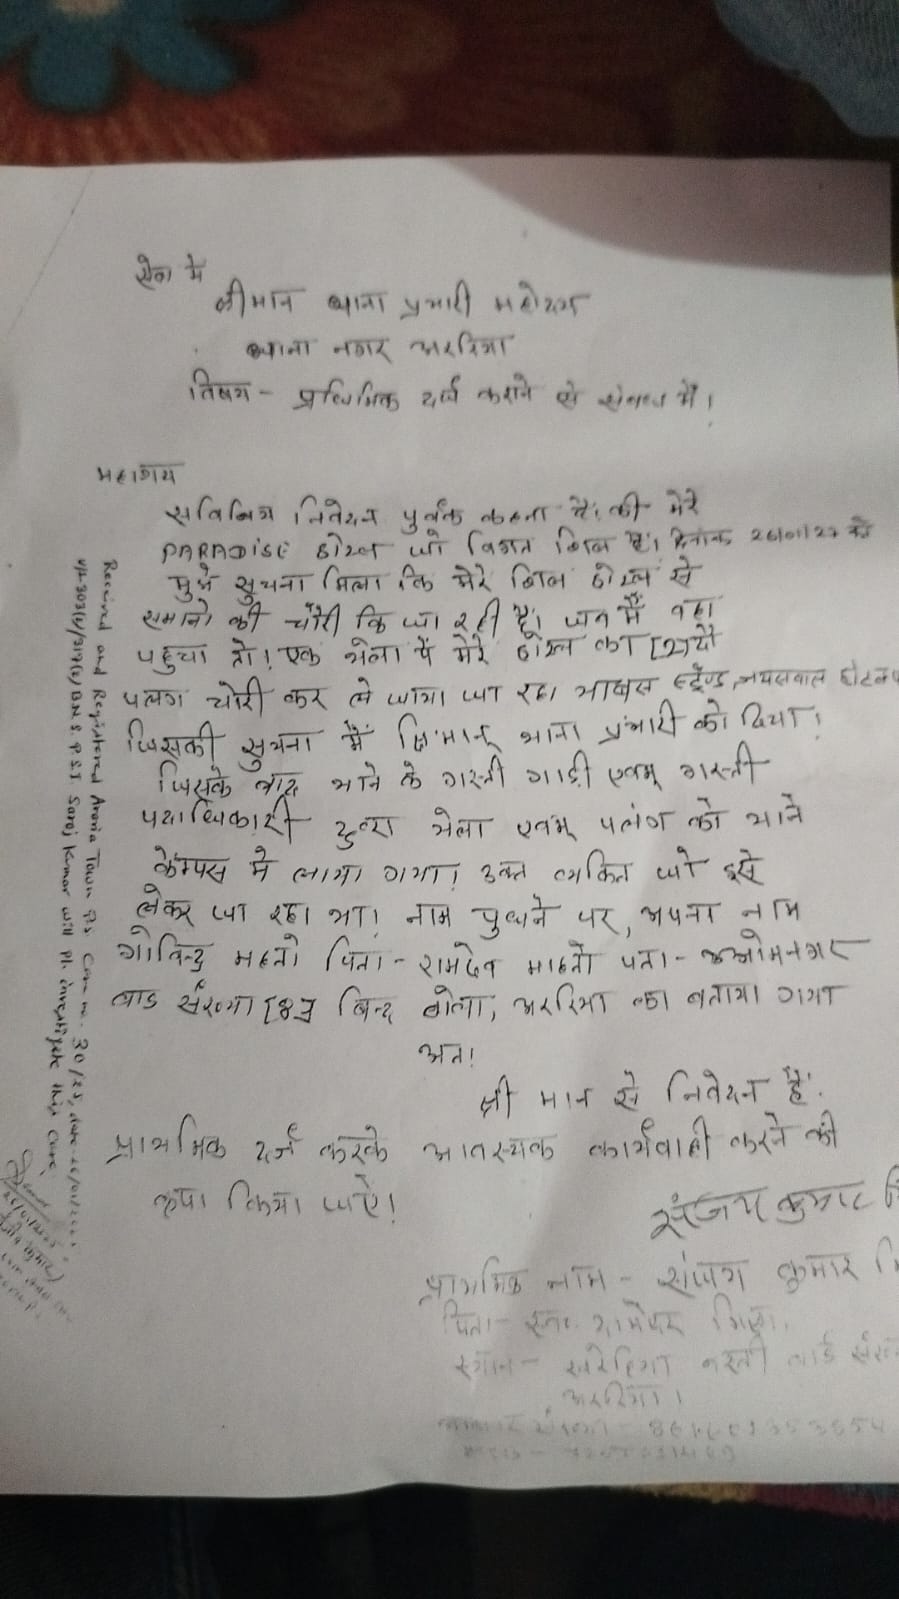 सेवा में
श्रीमान थाना प्रभारी महोदय
थाना नगर अररिया
विषय - प्राथमिक दर्ज कराने से संबन्ध में।
महाशय
सविनिय निवेदन पुर्वक कहना है। की मेरे
PARADISE होटल जो विगत सिल है। दिनांक 26/01/2 को
मुझे सुचना मिला कि मेरे सिल होटल से
समानो की चोरी कि जा रही हैं। जब मैं वहा
पहुचा तो। एक ठेला पे मेरे होटल का [2] दो
पलंग चोरी कर ले जाया जा रहा स्टेंण्ड, जयसवाल होटल
जिसकी सुचना मैं श्रिमान् थाना प्रभारी को दिया।
जिसके बाद थाने के गस्ती गाड़ी एवम् गस्ती
पदाधिकारी द्वारा ठेला एवम् पलंग को थाने
केम्पस मे लाया गया। उक्त व्यकित जो इसे
लेकर जा रहा था। नाम पुछने पर, अपना नाम
गोविन्द महतो पिता - रामदेव माहतो पता - ओमनगर
वाड संख्या [8] बिन्द टोला, अररिया का बताया गया
अत।
श्री मान से निवेदन हैं।
प्राथमिक दर्ज करके आवस्यक कार्यवाही करने की
कृपा किया जाऐ।
संजय कुमार
प्राथमिक नाम - संजय कुमार
पिता - स्व०
स्थान - खरैहिया बस्ती वार्ड
अररिया।
Received and Registered Araria Town P.S Case no. 30/25, date
U/s-303(2)/317(2) B.N.S P.S.I Saroj Kumar will Pl. investigate this Case